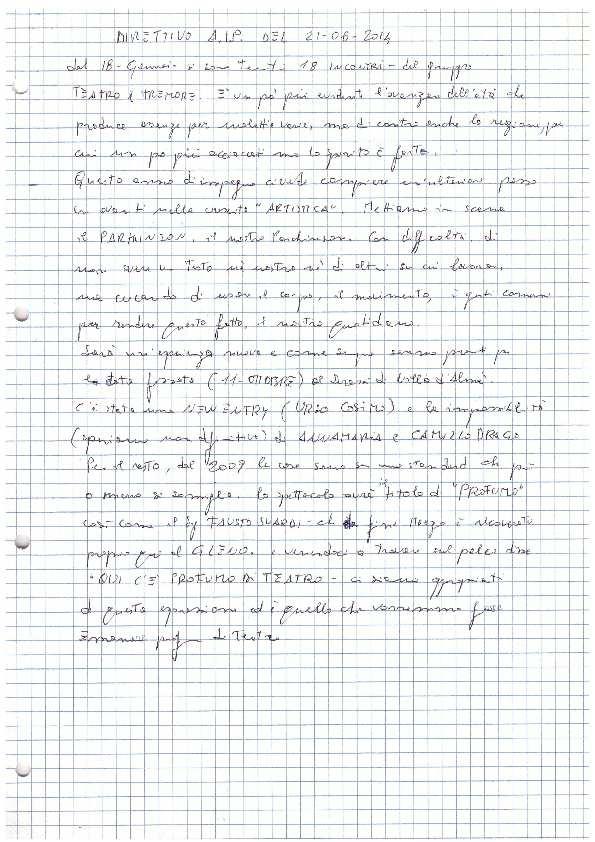 DIRETTIVO A.I.P. DEL 21-06-2014
dal 18- Gennaio si sono tenuti 18 INCONTRI - del gruppo
TEATRO E TREMORE. E' un pò più evidente l'avanzare dell'età che
produce assenze per malattie varie, ma di contro anche
cui un po più acciaccati ma lo spirito è forte.
Questo anno di impegno ci vede compiere un'ulteriore passo
in avanti nella crescita "ARTISTICA". Mettiamo in scena
il PARKINSON, il nostro Parkinson. Con difficoltà di
non avere un Testo nè nostro nè di altri su cui lavorare,
ma cercando di usare il corpo, il movimento, i gesti comuni
per rendere questo fatto, il nostro quotidiano.
Sarà un'esperienza nuova e come sempre saremo pronti per
la data fissata (11-OTTOBRE) al di Villa d'Almè.
C'è stata una NEW ENTRY (URIO COSIMO) e le impossibilità
(speriamo non definitive) di ANNAMARIA e CAMILLO DRAGO
Per il resto, dal 2009 le cose sono in uno standard che più
o meno si somiglia. Lo spettacolo avrà il titolo di "PROFUMO"
così come il FAUSTO SUARDI - che da fine Marzo è ricoverato
proprio qui al GLENO. e venendoci a trovare sul palco disse
"QUI C'E' PROFUMO DI TEATRO - ci siamo appropriati
di questa espressione ed è quello che vorremmo fosse
Emanare profumo di Teatro